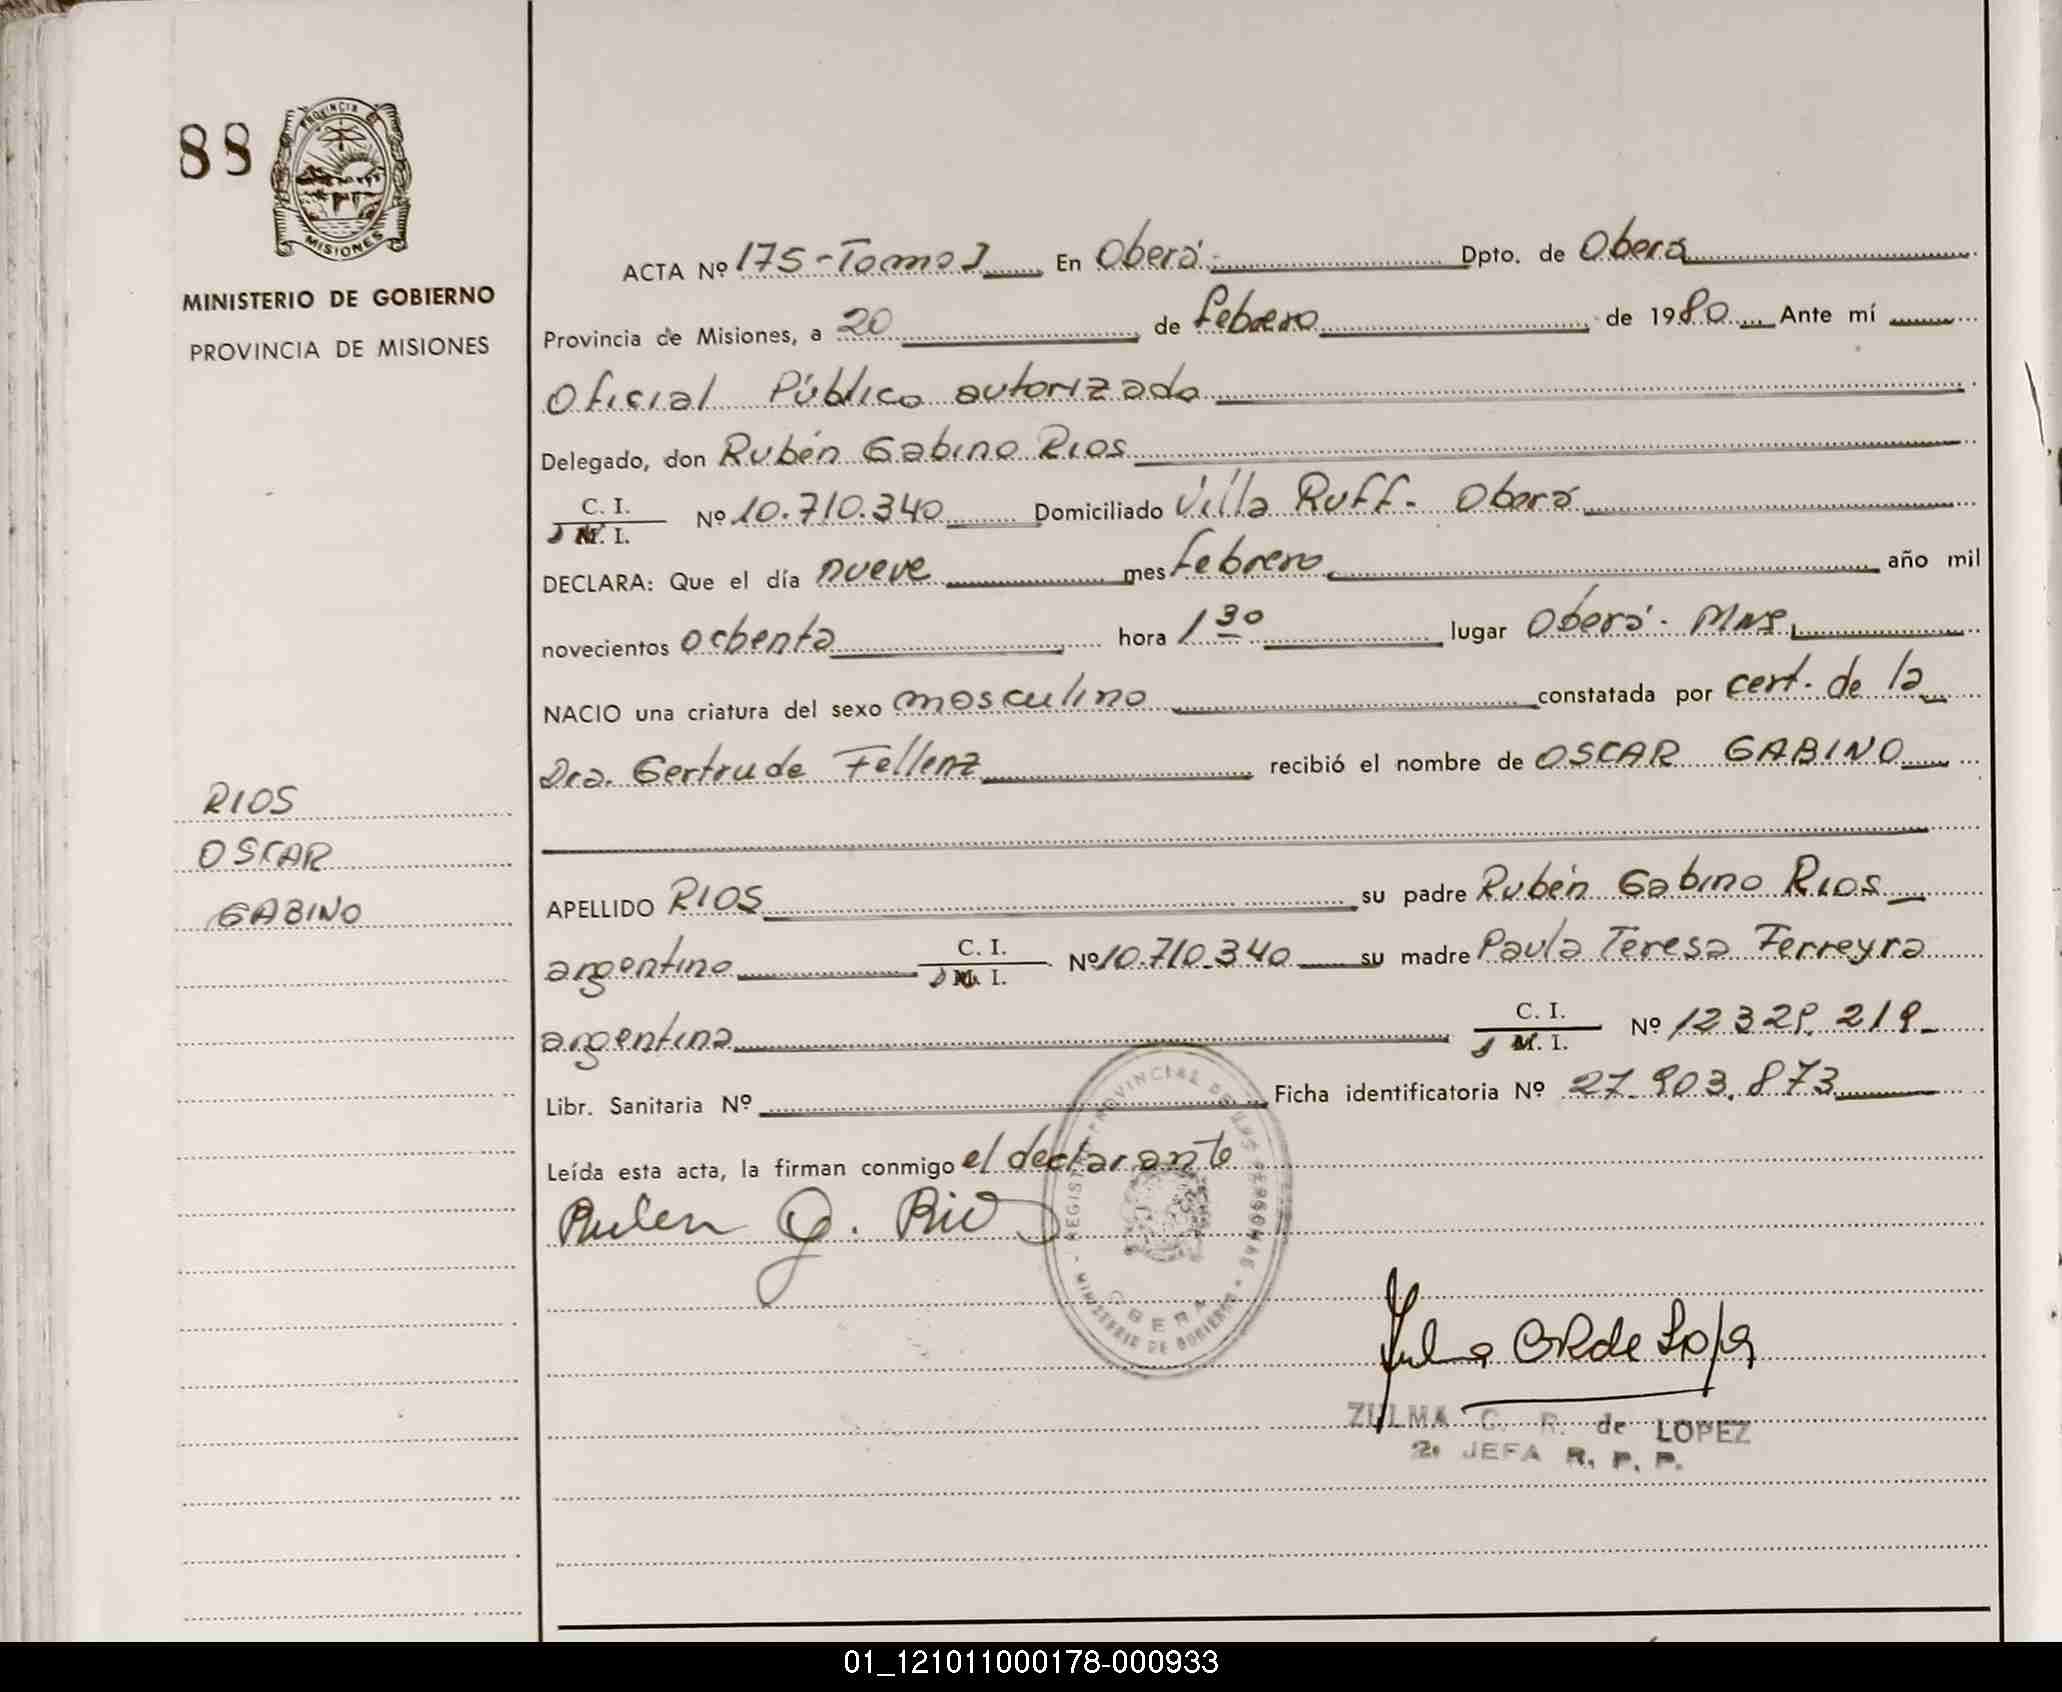 88
PROVINCIA DE
MISIONES
MINISTERIO DE GOBIERNO
PROVINCIA DE MISIONES
ACTA Nº 175-Tomo I En Oberá.- Dpto. de Oberá
Provincia de Misiones, a 20 de febrero de 1980 Ante mí
Oficial Público autorizado
Delegado, don Rubén Gabino Rios
C. I.
D M. I. Nº 10.710.340 Domiciliado Villa Ruff- Oberá
DECLARA: Que el día nueve mes febrero año mil
novecientos ochenta hora 1 30 lugar Oberá- Mns.
NACIO una criatura del sexo masculino constatada por cert. de la
Dra. Gertrude Fellenz recibió el nombre de OSCAR GABINO
RIOS
OSCAR
GABINO
APELLIDO RIOS su padre Rubén Gabino Rios
argentino C. I. D M. I. Nº 10.710.340 su madre Paula Teresa Ferreyra
argentina C. I. D M. I. Nº 12 329. 219
Libr. Sanitaria Nº Ficha identificatoria Nº 27.903.873
Leída esta acta, la firman conmigo el declarante
Ruben G. Rios
REGISTRO PROVINCIAL DE LAS PERSONAS
OBERA
MINISTERIO DE GOBIERNO
Zulma C R de Lopez
ZULMA C. R. de LOPEZ
2º JEFA R. P. P.
01_121011000178-000933